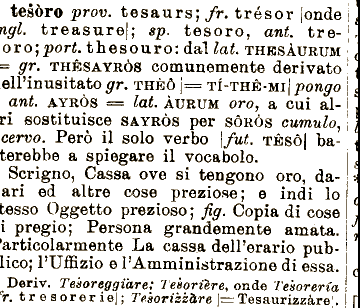 tesòro prov. tesaurs; fr. trésor [onde
ingl. treasure]; sp. tesoro, ant. tre-
oro; port. thesouro: dal lat. THESÀURUM
= gr. THÊSAYRÒS comunemente derivato
ell'inusitato gr. THÈÔ [= TÍ-THÊ-MI] pongo
ant. AYRÒS = lat. ÀURUM oro, a cui al-
ri sostituisce SAYRÒS per SÔRÒS cumulo,
cervo. Però il solo verbo [fut. TÊSÔ] ba-
terebbe a spiegare il vocabolo.
Scrigno, Cassa ove si tengono oro, da-
ari ed altre cose preziose; e indi lo
tesso Oggetto prezioso; fig. Copia di cose
i pregio; Persona grandemente amata.
Particolarmente La cassa dell'erario pub-
lico; l'Uffizio e l'Amministrazione di essa.
Deriv. Tesoreggiàre; Tesorière, onde Tesorería
fr. tresorerie]; Tesorizzàre [= Tesaurizzàre].